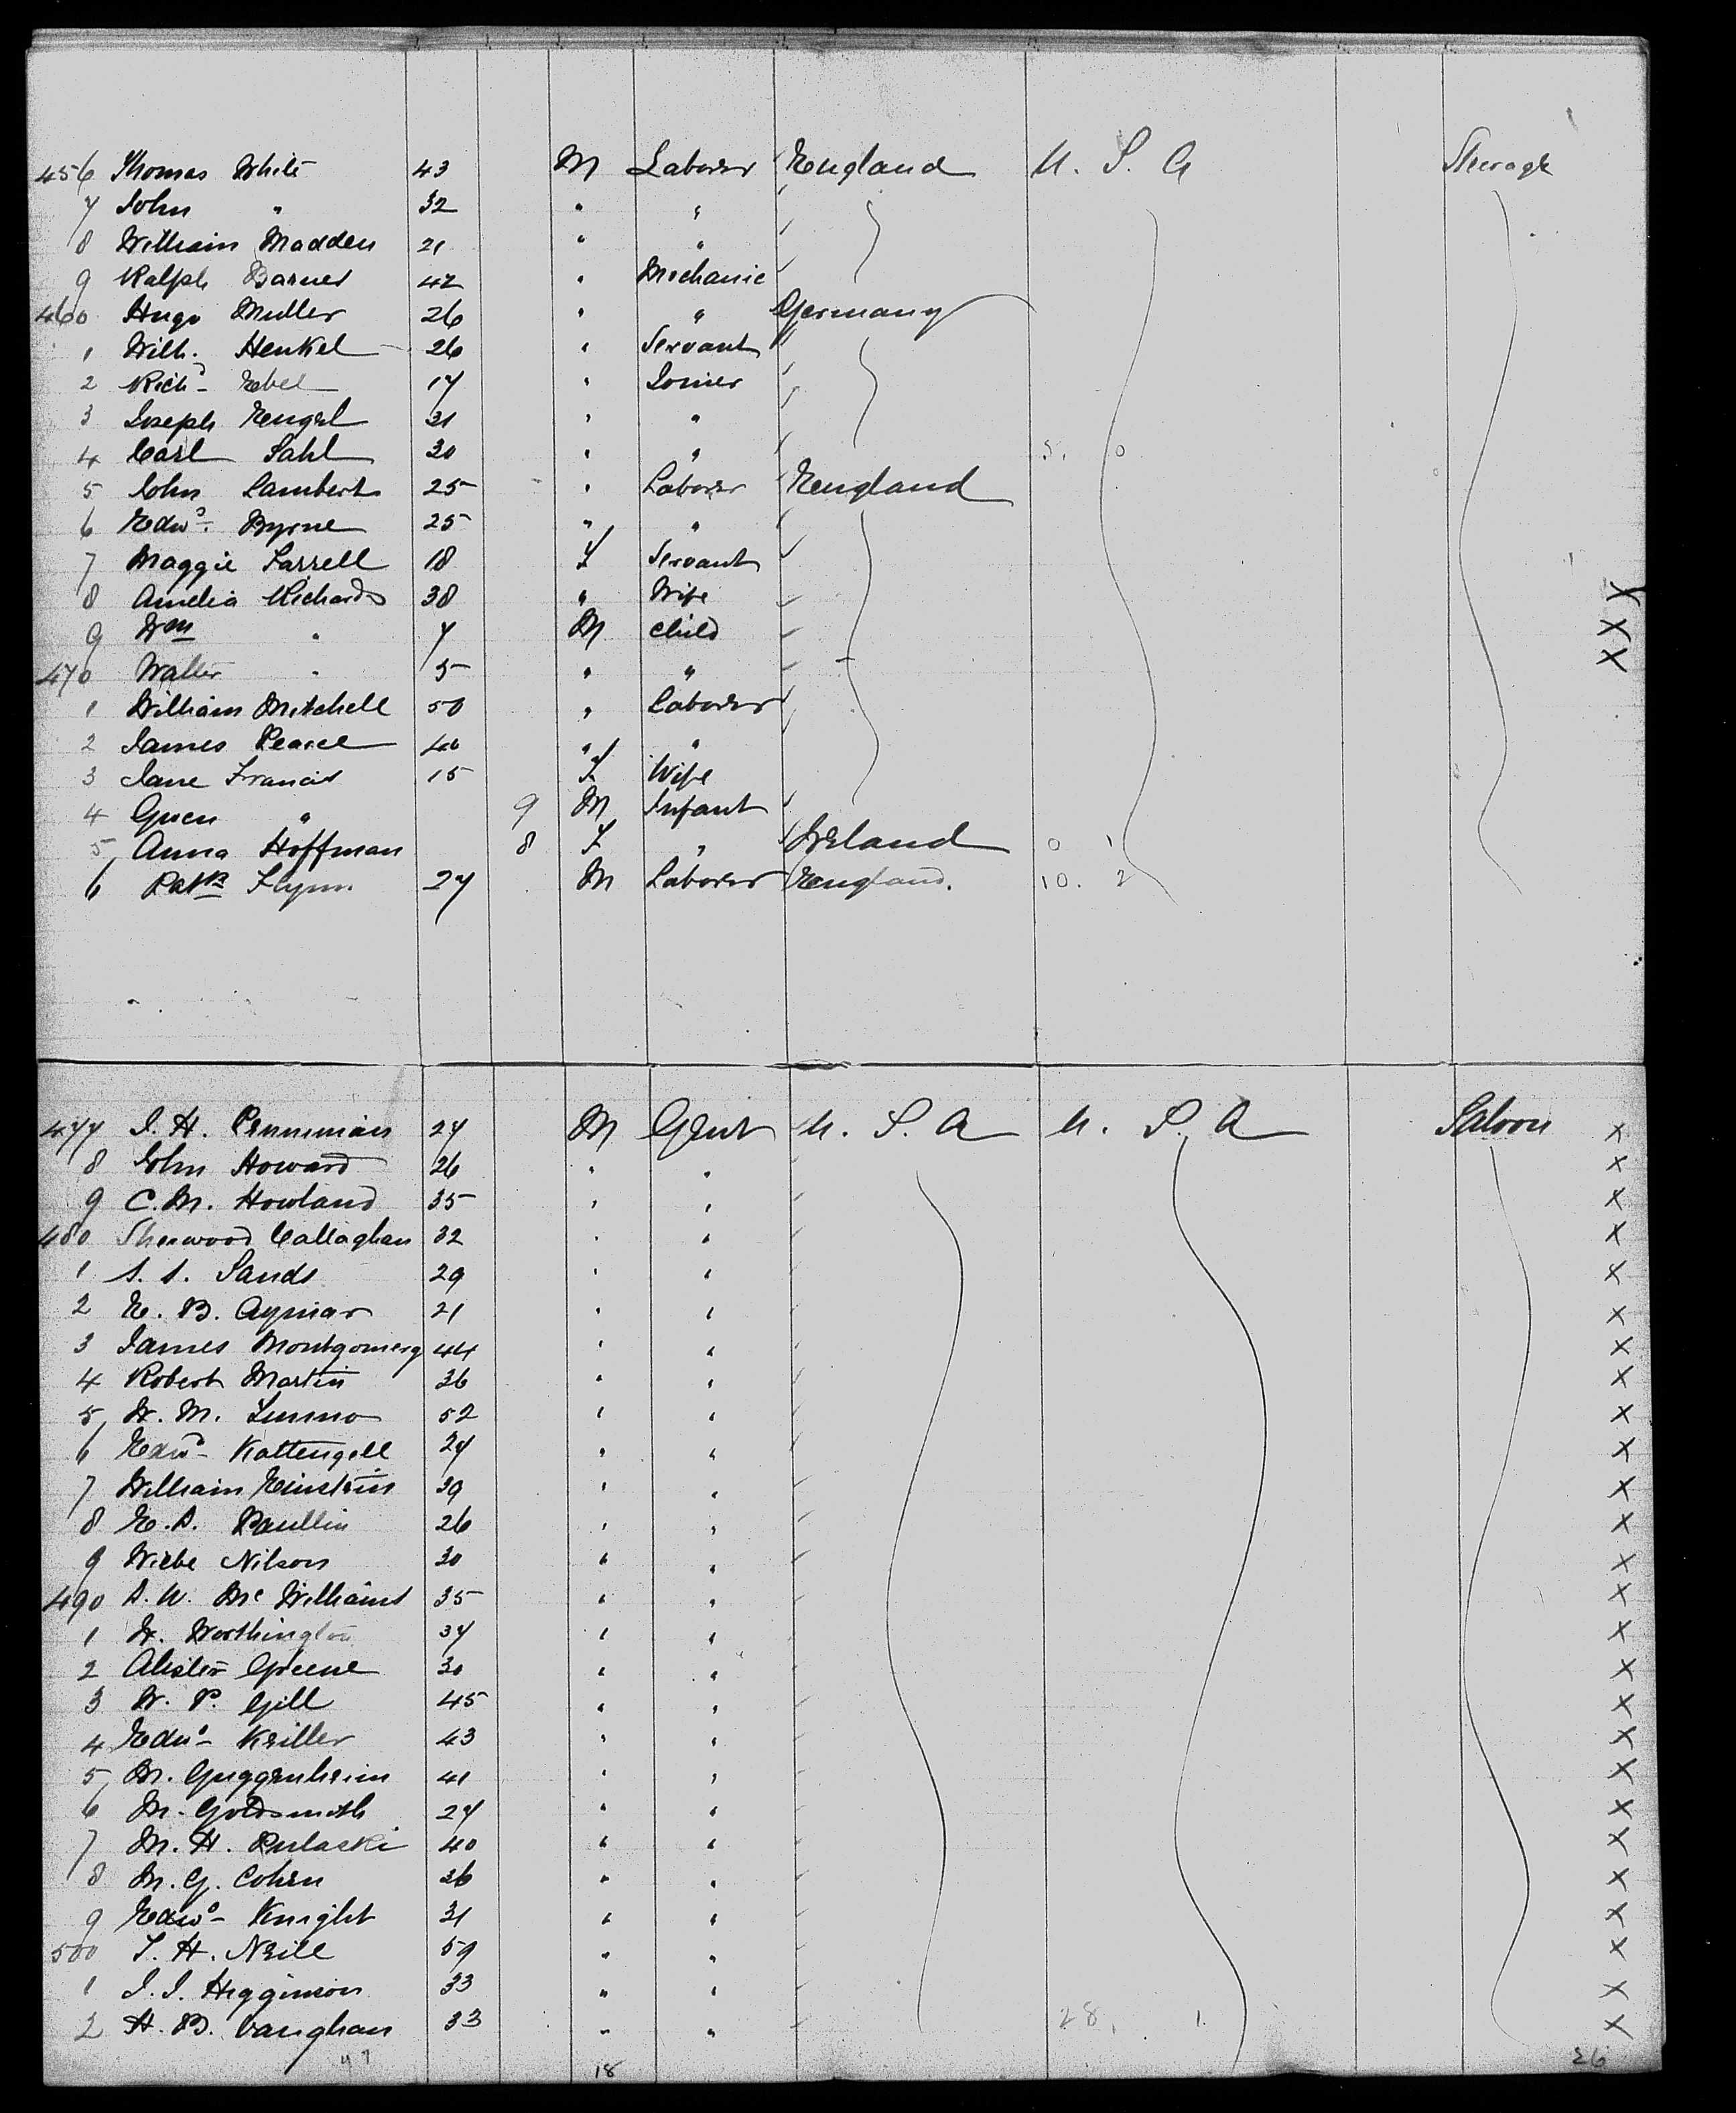 456 Thomas White 43 M Laborer England U. S. A Steerage
7 John " 32 " "
8 William Madden 21 " "
9 Ralph Barnes 42 " Mechanic
460 Hugo Muller 26 " " Germany
1 Wilh. Henkel 26 " Servant
2 Richd Ebel 17 " Joiner
3 Joseph Rengel 31 " "
4 Carl Sahl 30 " " 5. 0
5 John Lambert 25 " Laborer England
6 Edwd. Byrne 25 " "
7 Maggie Farrell 18 F Servant
8 Amelia Richards 38 " Wife X
9 Wm " 7 M Child X
470 Walter " 5 " " X
1 William Mitchell 50 " Laborer
2 James Pearce 40 " "
3 Jane Francis 15 F Wife
4 Gwen " 9 M Infant
5 Anna Hoffman 8 F " Ireland 0 1
6 Patk Flynn 27 M Laborer England. 10. 2
477 J. H. Penniman 27 M Gent U. S. A U. S. A Saloon X
8 John Howard 26 " " X
9 C. M. Howland 35 " " X
480 Sherwood Callaghan 32 " " X
1 S. S. Sands 29 " " X
2 E. B. Aymar 21 " " X
3 James Montgomery 44 " " X
4 Robert Martin 36 " " X
5 W. M. 52 " " X
6 Edwd Kattengell 27 " " X
7 William Einstein 39 " " X
8 E. A. Paullin 26 " " X
9 Wiebe Nilson 30 " " X
490 A. W. Mc Williams 35 " " X
1 W. Worthington 37 " " X
2 Alister Greene 30 " " X
3 W. P. Gill 45 " " X
4 Edwd Kriller 43 " " X
5 M. Guggenheim 41 " " X
6 M. Goldsmith 27 " " X
7 M. H. Pulaski 40 " " X
8 M. G. Cohen 26 " " X
9 Edwd Knight 31 " " X
500 T. H. Neill 59 " " X
1 J. J. Higginson 33 " " X
2 H. B. Vaughan 33 " " 28. 1. X
47 18 26